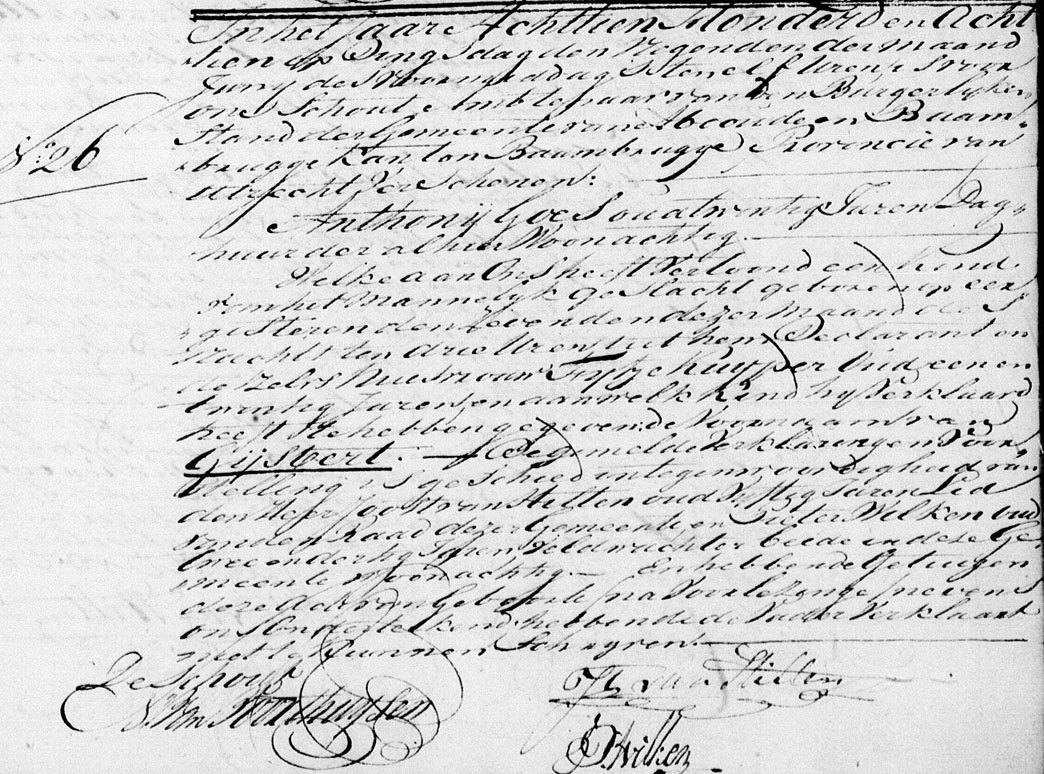 In het Jaare Achttien Honderd en Acht
tien op Dingsdag den Negenden der maand
Juny des voormiddags ten elf Uren is voor
ons Schout Ambtenaar van den Burgerlyken
Stand der Gemeente van Abcoude en Baam-
brugge Kanton Baambrugge Provincie van
Utrecht Verschenen:
N: 26
Anthonij Goes oud twintig Jaren Dag
huurder alhier Woonachtig.
Welke aan Ons heeft Vertoond een kind
van het Mannelyk geslacht geboren op een
gisteren den dezer Maand des
Nachts ten drie Uren uit hem Declarant en
deszelvs Huisvrouw Fytje Kuyper Oud een en
twintig Jaren en aan welk kind hy Verklaard
heeft te hebben gegeven de Voornaam van
Gijsbert. - De gemelde Verklaringen Voor
stelling is geschied in tegenwoordigheid van
den Heer Joost van Stilten oud Vyftyg Jaren Lid
van den Raad dezer Gemeente en Pieter Welken oud
twee en dertig Jaren Veldwachter beide in deze Ge
meente Woonachtig - En hebben de Getuigen
deze Acte van Geboorte na Voorlezinge nevens
ons Ondertekend hebbende de Vader Verklaart
niet te kunnen Schryven
De Schout
van
van Stilten